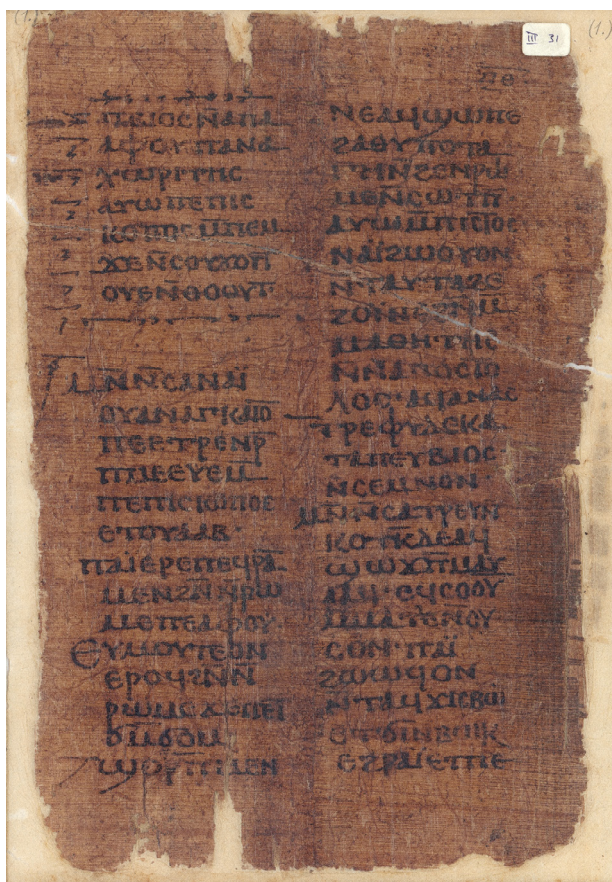 ⲠⲂⲒⲞⲤⲚⲀⲠⲀ
ⲀⲪⲞⲨⲠⲀⲚⲀ
ⲬⲰⲢⲒⲦⲎⲤ
ⲀⲨⲰⲠⲈⲠⲒⲤ
ⲔⲞⲠⲞⲤⲘⲠⲈⲘ
ϪⲈⲚⲤⲞⲨϪⲞⲨⲦ
ⲞⲨⲈⲚⲐⲞⲞⲨⲦ
ⲘⲚⲚⲤⲀⲚⲀⲒ̈
ⲞⲨⲀⲚⲀⲄⲔⲀⲒⲞ
ⲠⲈⲈⲦⲢⲈⲚⲢ̄
ⲠⲘⲈⲈⲨⲈⲘ̄
ⲠⲈⲠⲒⲤⲔⲞⲠⲞⲤ
ⲈⲦⲞⲨⲀⲀⲂ·
ⲠⲀⲒⲈⲢⲈⲠⲈϤⲢⲀ
ⲘⲈⲚϨⲚ̄Ⲛ̄ⲢⲰ
ⲘⲈⲠⲈⲀⲪⲞⲨ
ⲈⲨⲘⲞⲨⲦⲈⲞⲚ
ⲈⲢⲞϤϨⲚ̄Ⲛ̄
ⲢⲰⲘⲞϪⲈⲠⲈⲒ
ϬⲘ̄ϬⲞⲘ·
ϢⲞⲢⲠⲘⲈⲚ
ⲠⲐ
ⲚⲈⲀϤϢⲰⲠⲈ
ϨⲀⲐⲨⲠⲞⲦⲀ
ⲄⲎⲚ̄ϨⲈⲚⲢⲰ
ⲘⲈⲚ̄ⲤⲰⲦⲠ̄
ⲀⲨⲰⲘ̄ⲠⲒⲤⲦⲞⲤ
ⲚⲀⲒ̈ϨⲰⲞⲨⲞⲚ
Ⲛ̄ⲦⲀⲨⲦⲀϨⲈ
ϨⲞⲨⲚ̄ⲤⲨⲚ̄Ⲙ̄
ⲘⲀⲐⲎⲦⲎⲤ
Ⲛ̄ⲚⲀⲠⲞⲤⲦⲞ
ⲖⲞⲤ·ⲀⲨⲀⲚⲀⲤ
ⲦⲢⲈⲪⲨⲆⲈⲔⲀ
ⲦⲀⲠⲈⲨⲂⲒⲞⲤ
Ⲛ̄ⲤⲈⲘⲚⲞⲚ·
ⲘⲚ̄Ⲛ̄ⲤⲀⲦⲢⲈⲨⲚ̄
ⲔⲞⲦⲔ̄ⲆⲈⲀϤ
ϢⲰϪⲠ̄Ⲙ̄ⲘⲀⲨ
ⲀⲀϤ·ⲈϤⲤⲞⲞⲨ
Ⲙ̄ⲘⲀⲨⲈⲚⲞⲨ
ⲤⲞⲚ·ⲠⲀⲒ̈
ϨⲰⲰϤⲞⲚ
Ⲛ̄ⲦⲀϤϪⲒⲈⲂⲰ
ⲈⲦϬⲒⲚⲂⲰⲔ
ⲈϨⲢⲀⲒ̈ⲈⲦⲠⲈ
Ⅲ 31
(1.)